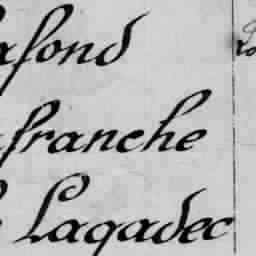 afond
afranche
Lagadec